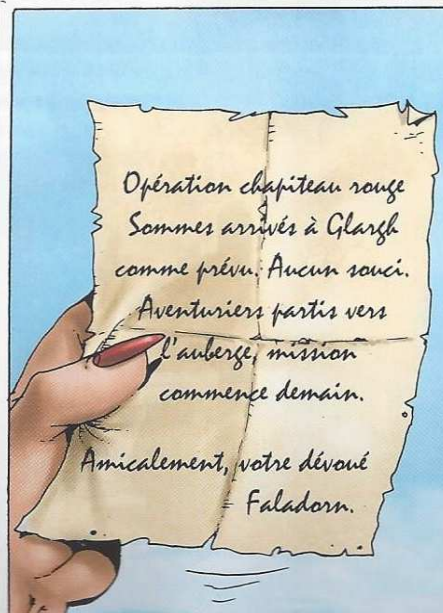 Opération chapiteau rouge
Sommes arrivés à Glargh
comme prévu. Aucun souci.
Aventuriers partis vers
l'auberge, mission
commence demain.
Amicalement, votre dévoué
Faladorn.